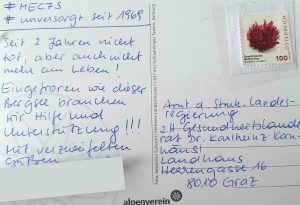 #MECFS
#unversorgt seit 1969
Seit 2 Jahren nicht
tot, aber auch nicht
mehr am Leben!
Eingefroren wie dieser
Bergsee brauchen
wir Hilfe und
Unterstützung!!!
Mit verzweifelten
Grüßen
alpenverein
ÖSTERREICH
100
Amt d. Stmk. Landes-
regierung
z.H. Gesundheitslandes
rat Dr. Karlheinz Korn-
häusl
Landhaus
Herrengasse 16
8010 Graz